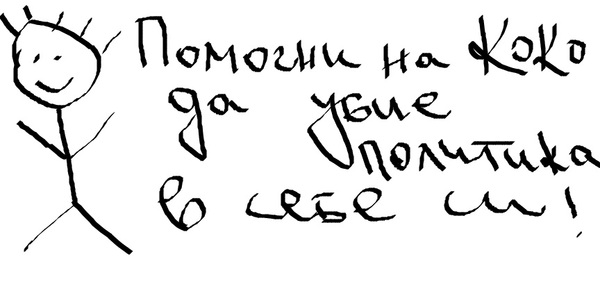 Помогни на Коко
да убие
политика
в себе си!